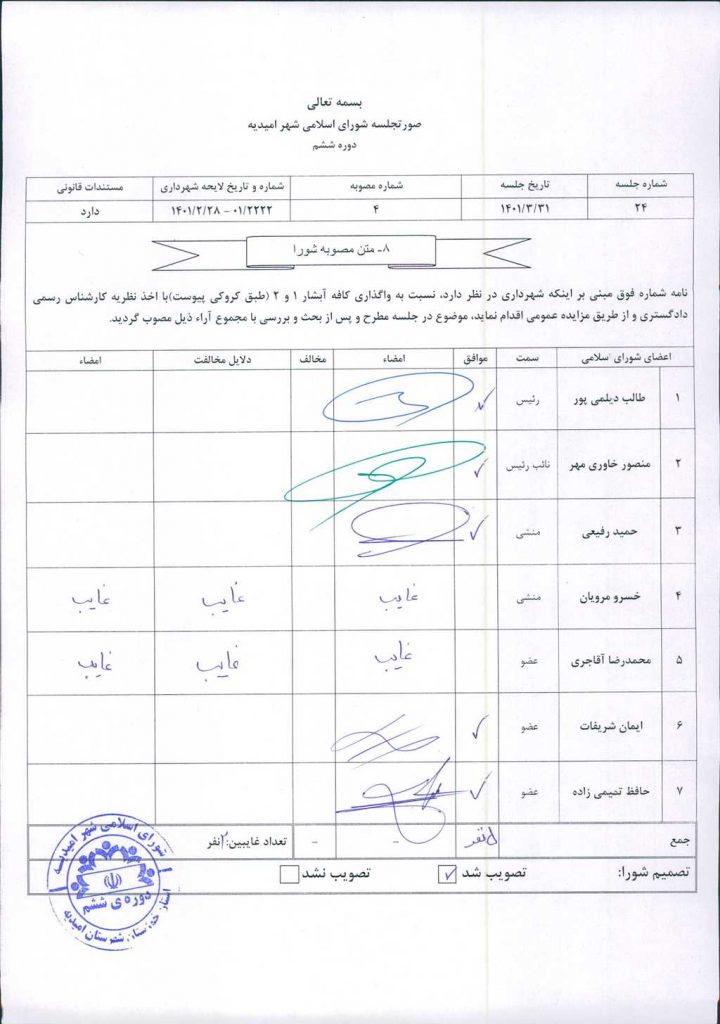 بسمه تعالی
صورتجلسه شورای اسلامی شهر امیدیه
دوره ششم
شماره جلسه تاریخ جلسه شماره مصوبه شماره و تاریخ لایحه شهرداری مستندات قانونی
۲۴ ۱۴۰۱/۳/۳۱ ۴ ۰۱/۲۲۲۲ – ۱۴۰۱/۲/۲۸ دارد
۸- متن مصوبه شورا
نامه شماره فوق مبنی بر اینکه شهرداری در نظر دارد، نسبت به واگذاری کافه آبشار ۱ و ۲ (طبق کروکی پیوست)با اخذ نظریه کارشناس رسمی
دادگستری و از طریق مزایده عمومی اقدام نماید، موضوع در جلسه مطرح و پس از بحث و بررسی با مجموع آراء ذیل مصوب گردید.
اعضای شورای اسلامی سمت موافق امضاء مخالف دلایل مخالفت امضاء
۱ طالب دیلمی پور رئیس ✓
۲ منصور خاوری مهر نائب رئیس ✓
۳ حمید رفیعی منشی ✓
۴ خسرو مرویان منشی غایب غایب غایب
۵ محمدرضا آقاجری عضو غایب غایب غایب
۶ ایمان شریفات عضو ✓
۷ حافظ تمیمی زاده عضو ✓
جمع ۵ نفر - - تعداد غایبین:۲نفر
تصمیم شورا: تصویب شد ✓ تصویب نشد
شورای اسلامی شهر امیدیه
دوره ی ششم
استان خوزستان شهرستان امیدیه